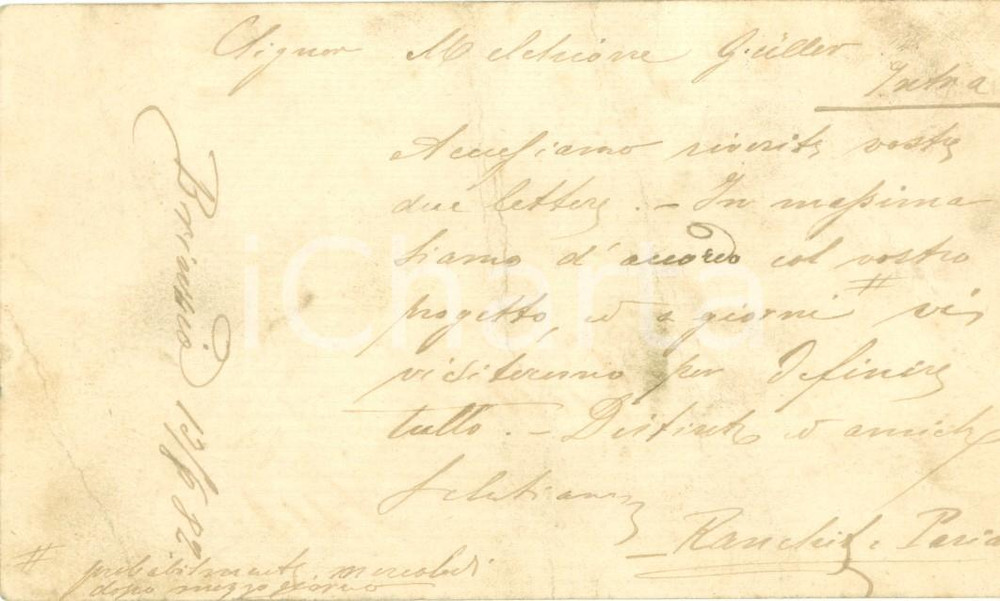 Signor Melchiorre Güller
Intra
Accusiamo riverite vostre
due lettere. — In massima
siamo d'accordo col vostro
progetto, ed a giorni # vi
visiteremo per definire
tutto. — Distinti ed amich
salutiamo
Ranchet e
Brinzio 13/6 82
# probabilmente mercoledì
dopo mezzogiorno
iCharta